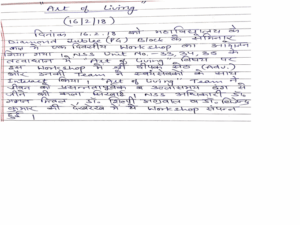 "Art of Living"
(16|2|18)
दिनांक 16.2.18 को महाविद्यालय के
Diamond Jubilee (PG) Block के सेमिनार
हाल में एक दिवसीय Workshop का आयोजन
किया गया। NSS Unit No.- 33, 34, 35 के
तत्वाधान में Art of Living विषय पर
इस Workshop में श्री दीपक सेठ (Adv.)
और उनकी Team ने स्वयंसेवकों के साथ
Interact किया। Art of Living Team ने
जीवन को प्रसन्नतापूर्वक व उल्लासमय ढंग से
जीने की कला सिखाई। NSS अधिकारी डॉ०
डॉ० शिवानी अग्रवाल व डॉ०
कुमार की देखरेख में ये Workshop संपन्न
हुई।